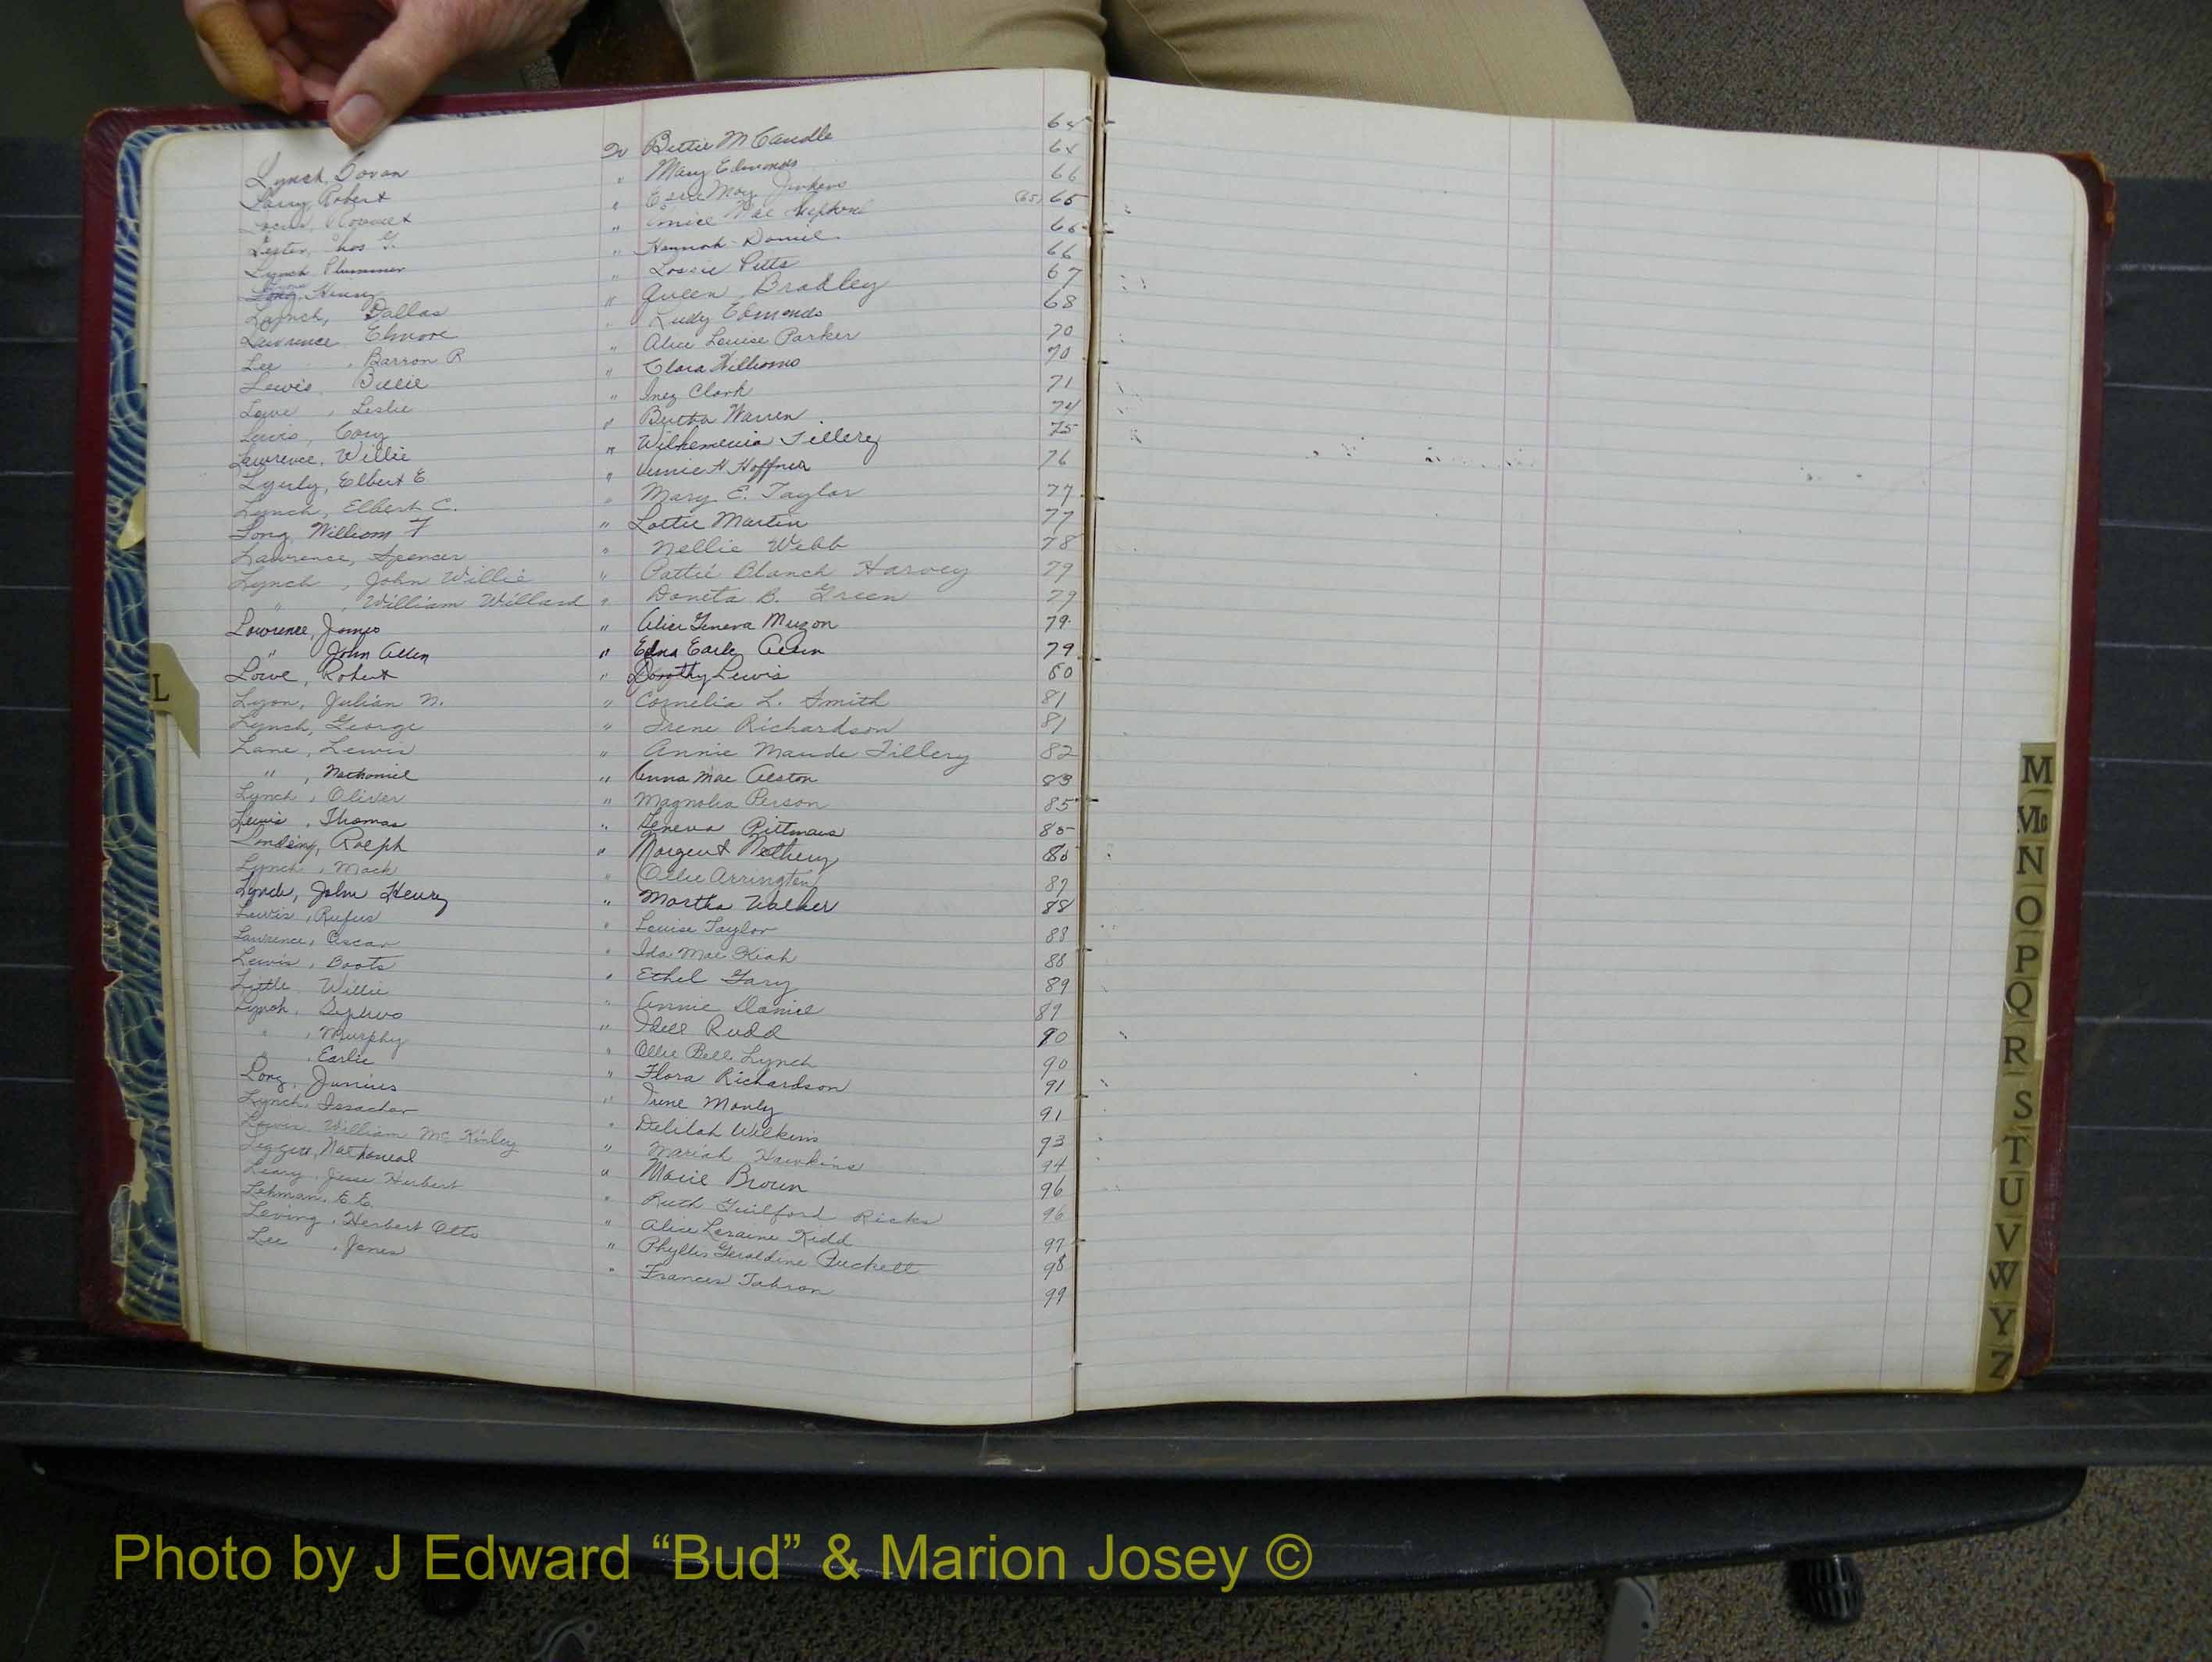 Lynch, Dovon To Bettie M Caudle 65
Larry, Robert " Mary Edmonds 65
Robert " Essie May Jenkins 66
Lester, Chas G. " Eunice Mae (65) 65
Lynch Plummer " Hannah Daniel 66
Long, Henry " Lossie Pitts 66
Lynch, Dallas " Queen Bradley 67
Lawrence Elmore " Ludy Edmonds 68
Lee , Barron R " Alice Louise Parker 70
Lewis, Billie " Clara Williams 70
Lowe , Leslie " Inez Clark 71
Lewis, Cary " Bertha Warren 74
Lawrence, Willie " Wilhemenia Tillery 75
Lyerly, Elbert E " Vernie H Hoffner 76
Lynch, Elbert C. " Mary E. Taylor 77
Long William F " Lottie Martin 77
Lawrence, Spencer " Nellie Webb 78
Lynch , John Willie " Pattie Blanch Harvey 79
" , William Willard " Doneta B. Green 79
Lawrence, James " Alice Geneva Muzon 79
" John Allen " Edna Earle 79
Lowe, Robert " Dorothy Lewis 80
Lyon, Julian N. " Cornelia L. Smith 81
Lynch, George " Irene Richardson 81
Lane, Lewis " Annie Maude Tillery 82
" , Nathaniel " Anna Mae Alston 83
Lynch , Oliver " Magnolia Person 85
Lewis , Thomas " Geneva Pittman 85
Ralph " Margaret 86
Lynch , Mack " (Ollie Arrington) 87
Lynch, John Henry " Martha Walker 88
Lewis , Rufus " Louise Taylor 88
Lawrence, Oscar " Ida Mae Kiah 88
Lewis , Boots " Ethel Gary 89
Little Willie " Annie Daniel 89
Lynch, " Idell Rudd 90
" , Murphy " Ollie Bell Lynch 90
" , Earlie " Flora Richardson 91
Long, Junius " June Manly 91
Lynch, Issachar " Delilah Wilkins 93
Lewis William McKinley " Mariah Hawkins 94
Leggett, Nathaneal " Marie Brown 96
Leary, Jesse Herbert " Ruth Guilford Ricks 96
Lehman, E E " Alice Loraine Kidd 97
Leving, Herbert Otto " Phyllis Geraldine Puckett 98
Lee , James " Frances 99
L
M
Mc
N
O
P
Q
R
S
T
U
V
W
Y
Z
Photo by J Edward “Bud” & Marion Josey ©